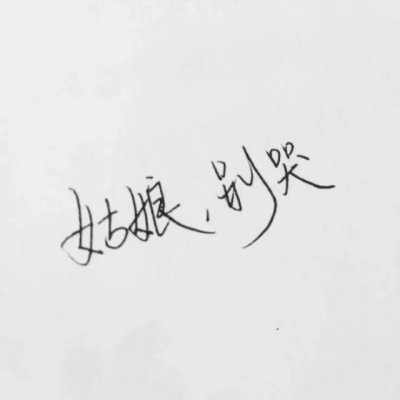 姑娘，别哭